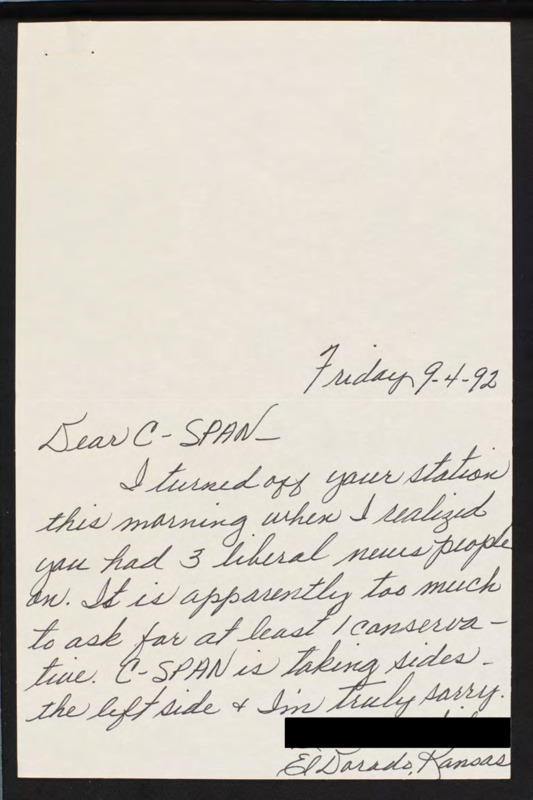 Friday 9-4-92
Dear C-SPAN—
I turned off your station
this morning when I realized
you had 3 liberal news people
on. It is apparently too much
to ask for at least 1 conserva-
tive. C-SPAN is taking sides -
the left side & I'm truly sorry.
El Dorado, Kansas